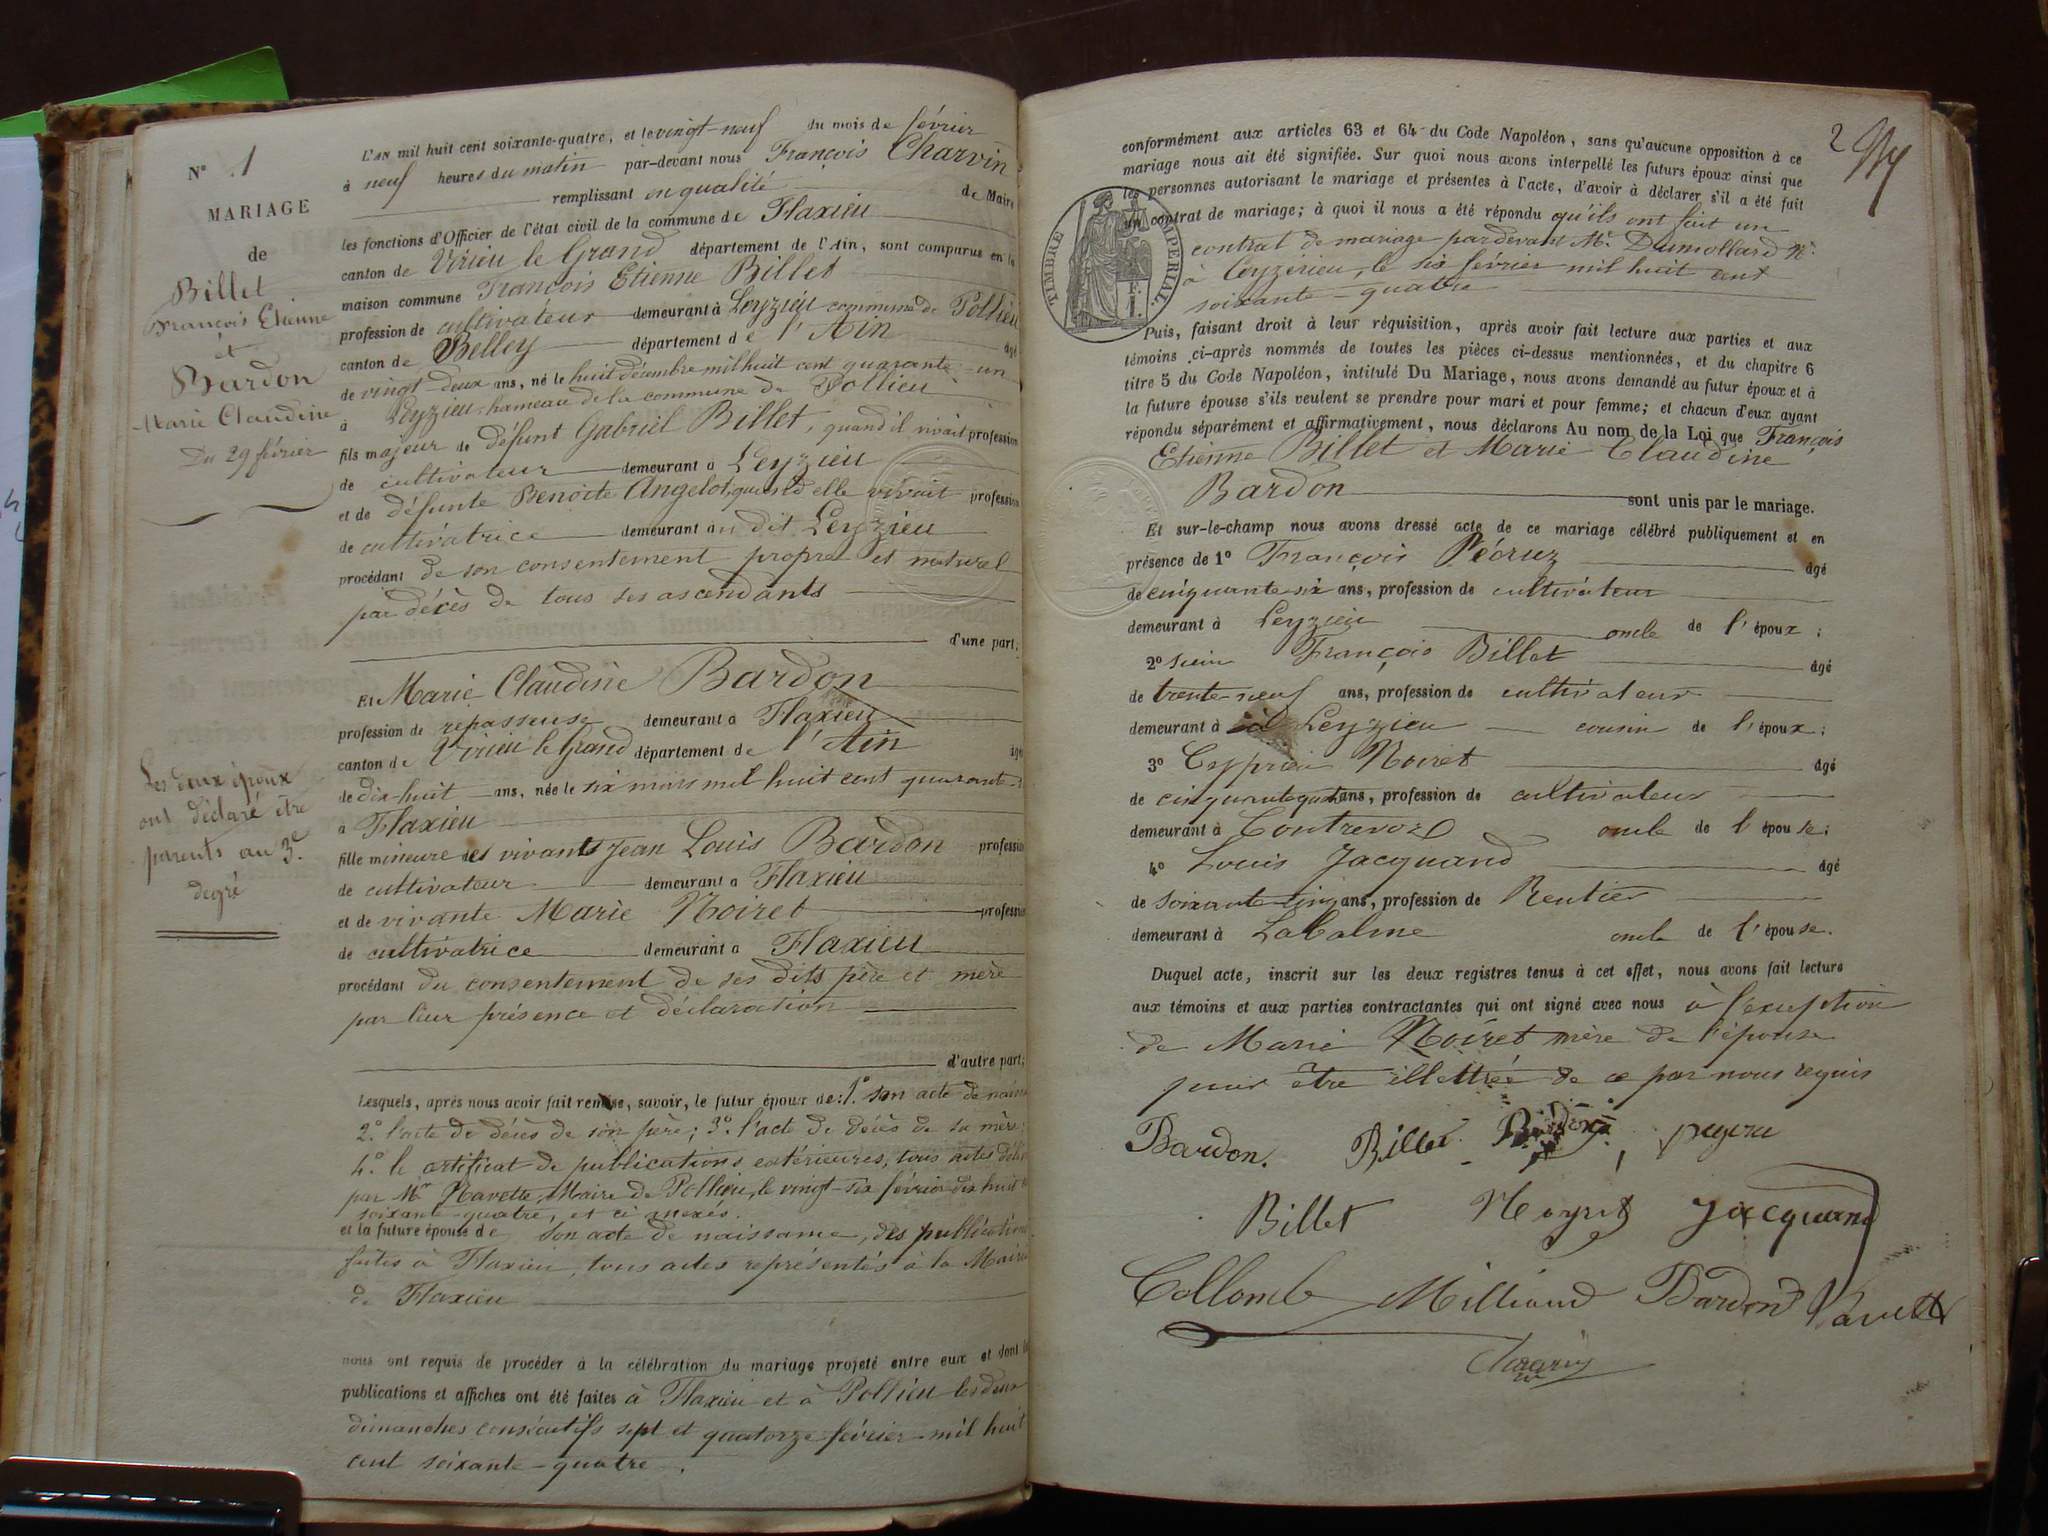 N° 1
MARIAGE
de
Billet
François Etienne
et
Bardon
Marie Claudine
Du 29 février
Les deux époux
ont déclaré être
parents au 3e
degré
L'AN mil huit cent soixante-quatre, et le vingt-neuf du mois de février
à neuf heures du matin par-devant nous François Charvin
remplissant en qualité de Maire
les fonctions d'Officier de l'état civil de la commune de Flaxieu
canton de Virieu le Grand département de l'Ain, sont comparus en la
maison commune François Etienne Billet
profession de cultivateur demeurant à Leyzieu commune de Pollieu
canton de Belley département de l'Ain âgé
de vingt-deux ans, né le huit décembre mil huit cent quarante-un
à Leyzieu, hameau de la commune de Pollieu
fils majeur de défunt Gabriel Billet, quand il vivait profession
de cultivateur demeurant à Leyzieu
et de défunte Benoite Angelot, quand elle vivait profession
de cultivatrice demeurant au dit Leyzieu
procédant de son consentement propre et naturel
par décès de tous ses ascendants
d'une part;
Et Marie Claudine Bardon
profession de repasseuse demeurant à Flaxieu
canton de Virieu le Grand département de l'Ain âgé
de dix-huit ans, née le six mars mil huit cent quarante
à Flaxieu
fille mineure des vivants Jean Louis Bardon profession
de cultivateur demeurant à Flaxieu
et de vivante Marie Noiret profession
de cultivatrice demeurant à Flaxieu
procédant du consentement de ses dits père et mère
par leur présence et déclaration
d'autre part;
Lesquels, après nous avoir fait remise, savoir, le futur époux de: 1° son acte de
2° l'acte de décès de son père; 3° l'acte de décès de sa mère;
4° le certificat de publications extérieures, tous actes
par Mr Navette, Maire de Pollieu, le vingt-six février dix huit
soixante-quatre, et ci annexés.
et la future épouse de son acte de naissance, des publications
faites à Flaxieu, tous actes représentés à la Mairie
de Flaxieu
nous ont requis de procéder à la célébration du mariage projeté entre eux et dont les
publications et affiches ont été faites à Flaxieu et à Pollieu les deux
dimanches consécutifs sept et quatorze février mil huit
cent soixante-quatre.
2
conformément aux articles 63 et 64 du Code Napoléon, sans qu'aucune opposition à ce
mariage nous ait été signifiée. Sur quoi nous avons interpellé les futurs époux ainsi que
les personnes autorisant le mariage et présentes à l'acte, d'avoir à déclarer s'il a été fait
un contrat de mariage; à quoi il nous a été répondu qu'ils ont fait un
contrat de mariage pardevant Me Dumollard Nre
à Ceyzérieu, le six février mil huit cent
soixante-quatre
TIMBRE IMPERIAL.
Puis, faisant droit à leur réquisition, après avoir fait lecture aux parties et aux
témoins ci-après nommés de toutes les pièces ci-dessus mentionnées, et du chapitre 6
titre 5 du Code Napoléon, intitulé Du Mariage, nous avons demandé au futur époux et à
la future épouse s'ils veulent se prendre pour mari et pour femme; et chacun d'eux ayant
répondu séparément et affirmativement, nous déclarons Au nom de la Loi que François
Etienne Billet et Marie Claudine
Bardon sont unis par le mariage.
Et sur-le-champ nous avons dressé acte de ce mariage célébré publiquement et en
présence de 1° François Péoruz âgé
de cinquante-six ans, profession de cultivateur
demeurant à Leyzieu oncle de l'époux;
2° François Billet âgé
de trente-neuf ans, profession de cultivateur
demeurant à Leyzieu cousin de l'époux;
3° Cyprien Noiret âgé
de cinquante quatre ans, profession de cultivateur
demeurant à Contrevoz oncle de l'épouse;
4° Louis Jacquand âgé
de soixante cinq ans, profession de Rentier
demeurant à LaBalme oncle de l'épouse.
Duquel acte, inscrit sur les deux registres tenus à cet effet, nous avons fait lecture
aux témoins et aux parties contractantes qui ont signé avec nous à l'exception
de Marie Noiret mère de l'épouse
pour être illettrée de ce par nous requis
Bardon. Billet Bardon
Billet Noyret Jacquand
Collomb Milliand Bardon Navette
Charvin